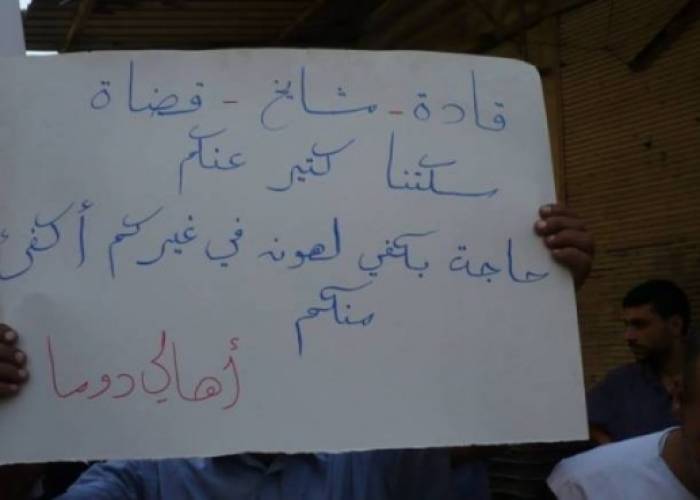 قادة - مشايخ - قضاة
سكتنا كتير عنكم
حاجة بكفي لهون في غيركم أكفئ
منكم
أهالي دوما